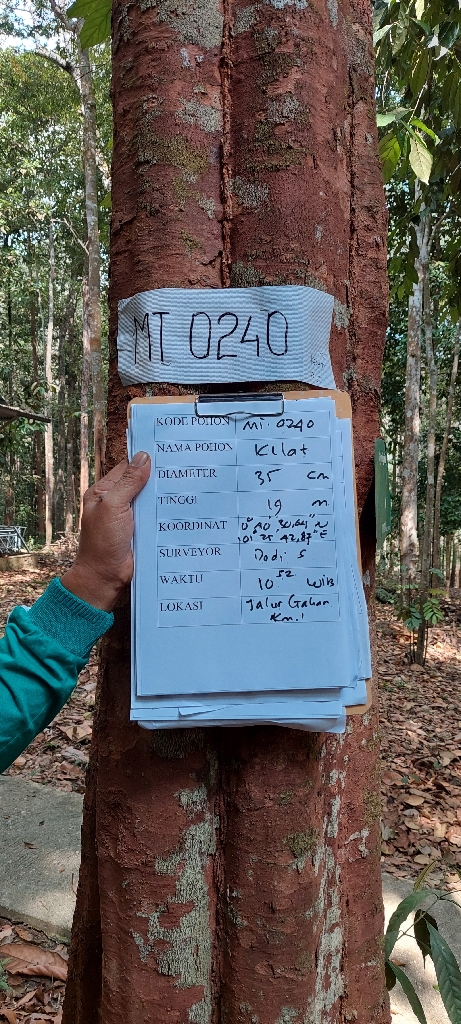 MT 0240
KODE POHON MT. 0240
NAMA POHON Kilat
DIAMETER 35 cm
TINGGI 19 m
KOORDINAT 0° 40' 30,64" N
101° 25' 42,87" E
SURVEYOR Dodi S
WAKTU 10 52 WIB
LOKASI Jalur Gahan
Km.1